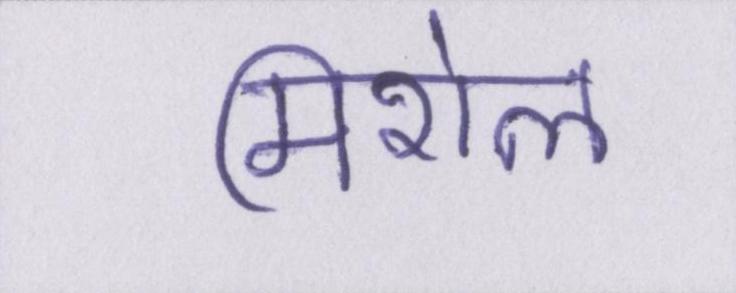 मिशेल